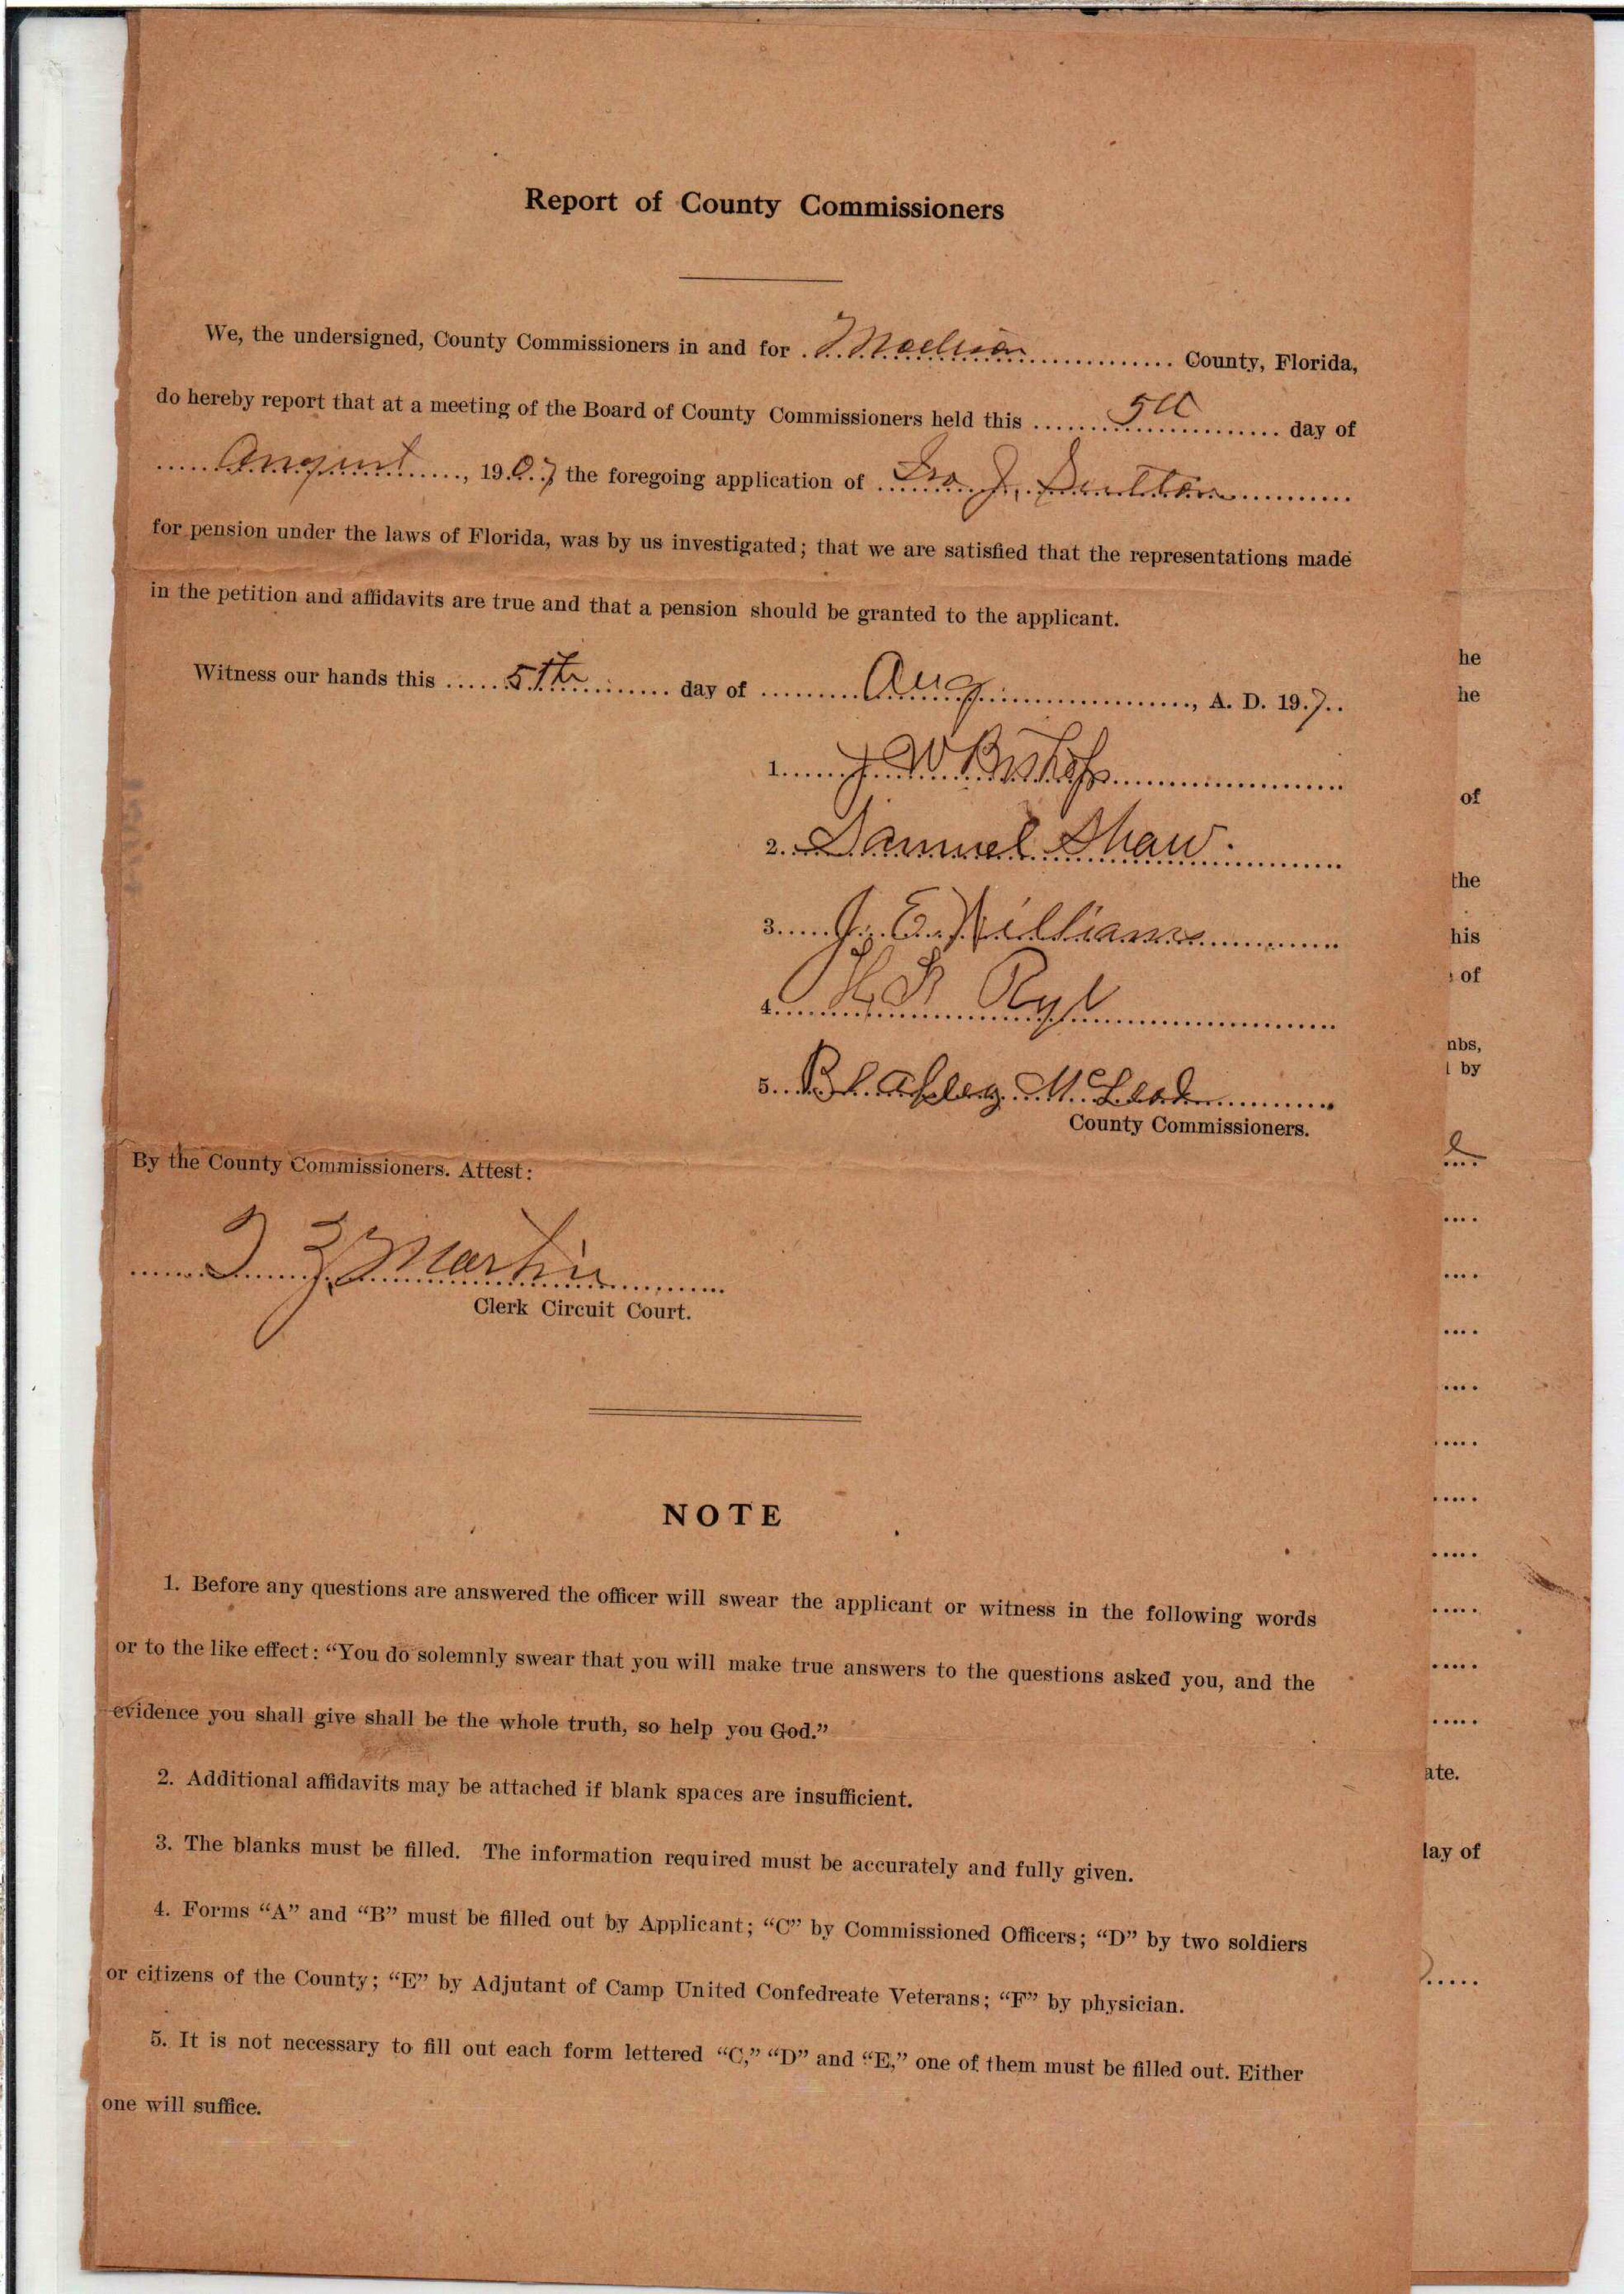 Report of County Commissioners
We, the undersigned, County Commissioners in and for Madison County, Florida,
do hereby report that at a meeting of the Board of County Commissioners held this 5th day of
August, 1907 the foregoing application of J.
for pension under the laws of Florida, was by us investigated; that we are satisfied that the representations made
in the petition and affidavits are true and that a pension should be granted to the applicant.
Witness our hands this 5th day of Aug, A. D. 19.7..
1. J W Bishop
2. Samuel Shaw
3. J. E. Williams
4. H B
5. McLeod
County Commissioners.
By the County Commissioners. Attest:
Martin
Clerk Circuit Court.
NOTE
1. Before any questions are answered the officer will swear the applicant or witness in the following words
or to the like effect: “You do solemnly swear that you will make true answers to the questions asked you, and the
evidence you shall give shall be the whole truth, so help you God.”
2. Additional affidavits may be attached if blank spaces are insufficient.
3. The blanks must be filled. The information required must be accurately and fully given.
4. Forms “A” and “B” must be filled out by Applicant; “C” by Commissioned Officers; “D” by two soldiers
or citizens of the County; “E” by Adjutant of Camp United Confedreate Veterans; “F” by physician.
5. It is not necessary to fill out each form lettered “C,” “D” and “E,” one of them must be filled out. Either
one will suffice.
he
he
of
the
his
of
nbs,
by
ate.
lay of